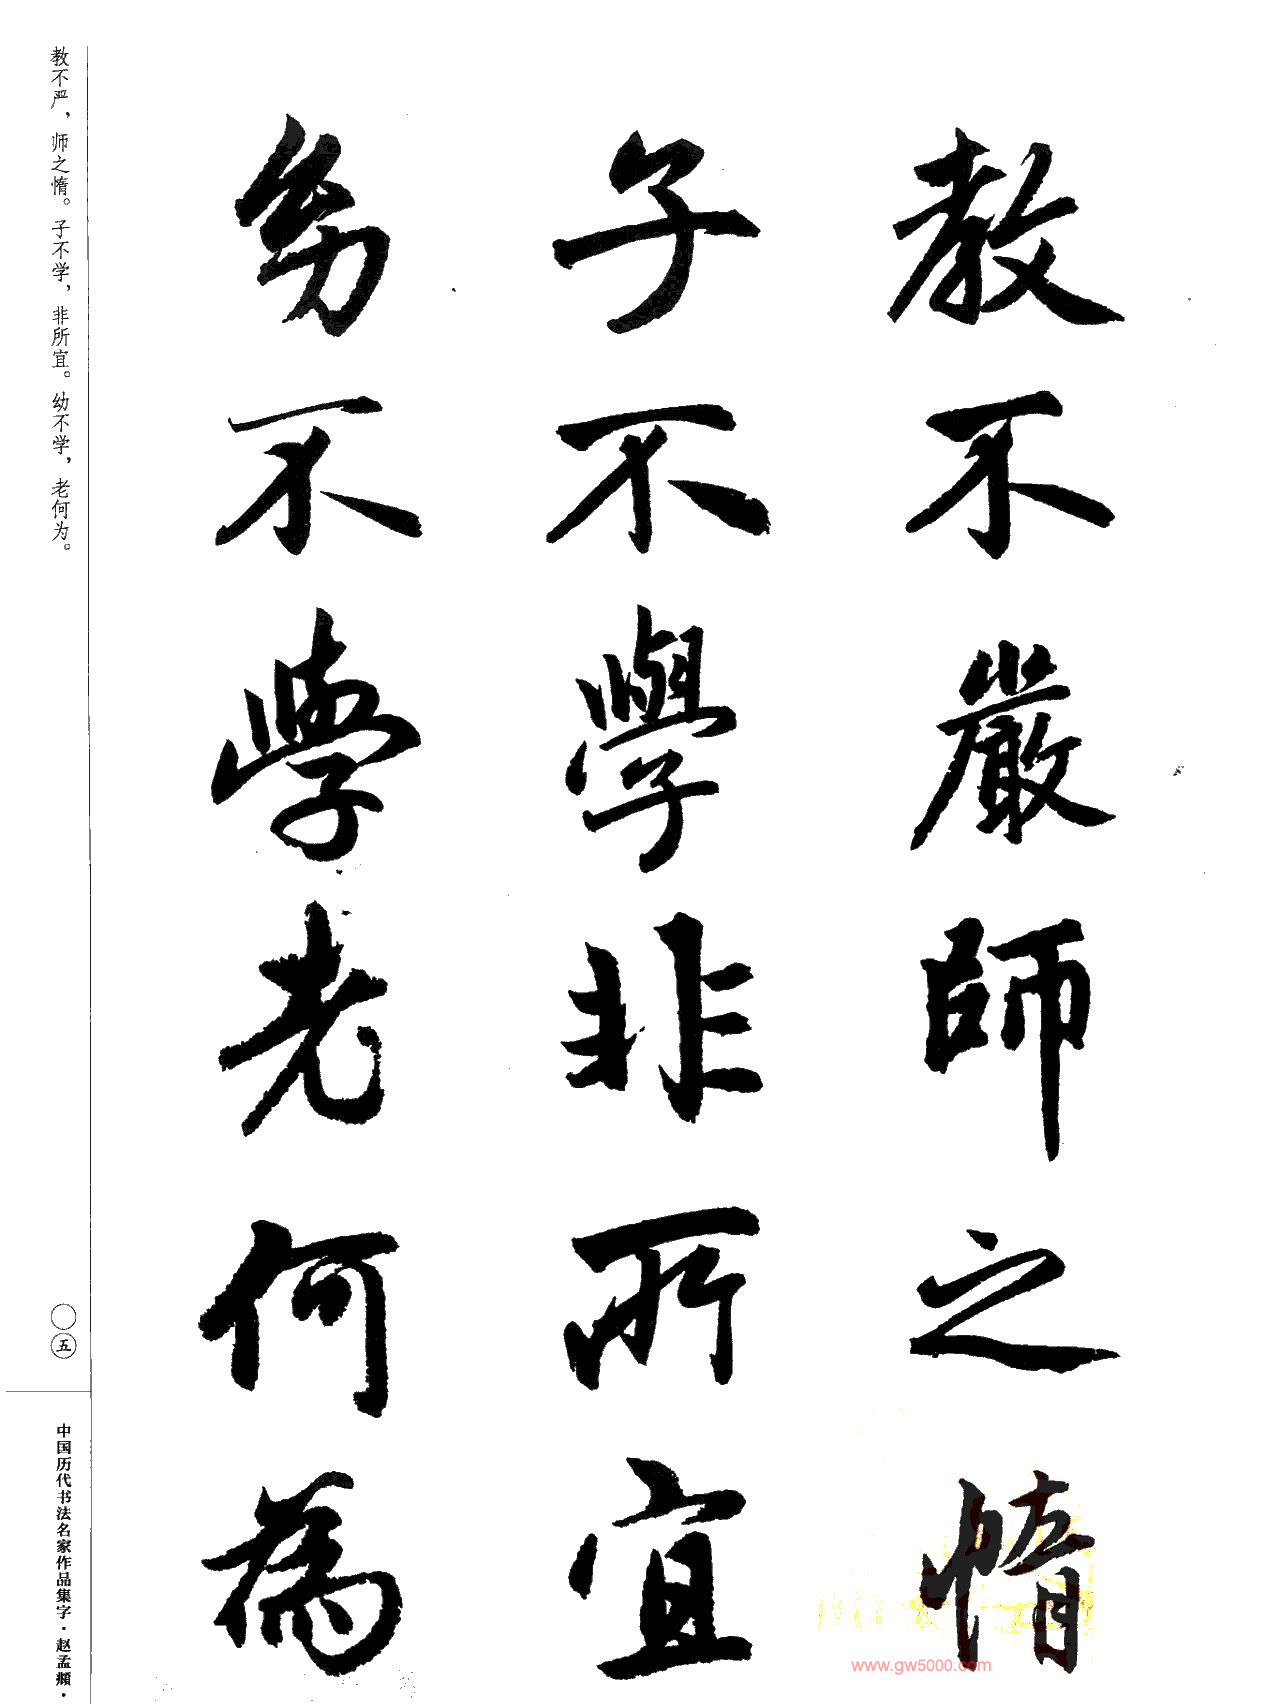 教不嚴師之惰
子不學非所宜
幼不學老何為
教不严，师之惰。子不学，非所宜。幼不学，老何为。
〇五
中国历代书法名家作品集字·赵孟頫·
www.gw5000.com